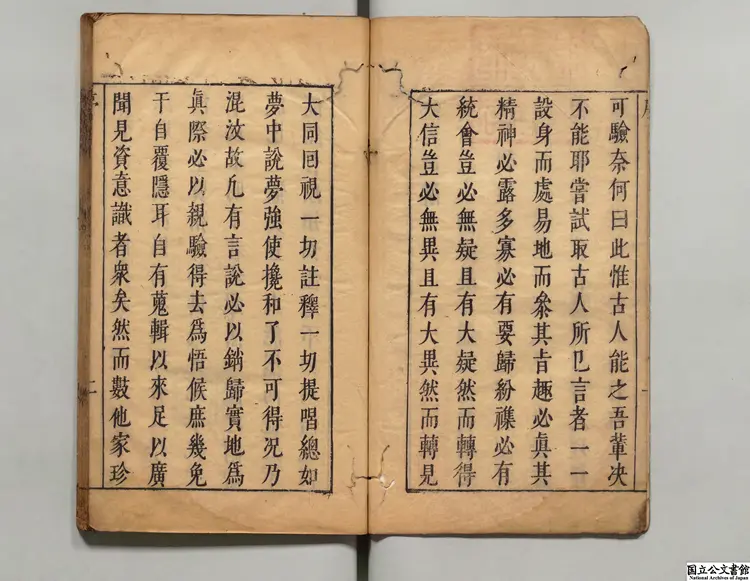 可驗奈何曰此惟古人能之吾輩决
不能耶嘗試取古人所已言者一一
設身而處易地而叅其旨趣必眞其
精神必露多寡必有要歸紛襍必有
統會豈必無疑且有大疑然而轉得
大信豈必無異且有大異然而轉見
大同回視一切註釋一切提唱總如
夢中說夢強使攙和了不可得况乃
混汶故凢有言說必以銷歸實地爲
眞際必以親驗得去爲悟候庶幾免
于自覆隱耳自有蒐輯以來足以廣
聞見資意識者衆矣然而數他家珍
二
国立公文書館
National Archives of Japan